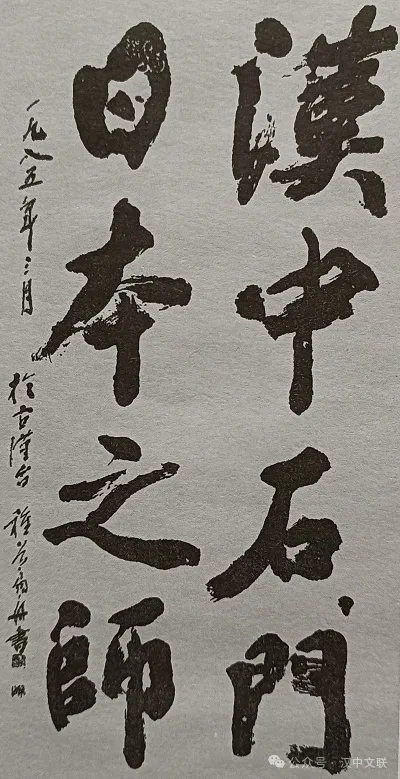 漢中石門
日本之師
一九八五年三月 於古漢台 種谷扇舟書
公众号·汉中文联